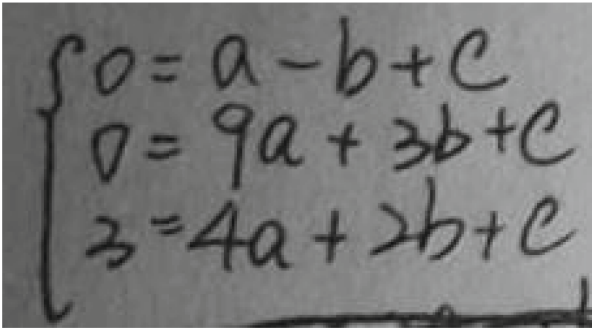 0 = a - b + c
0 = 9a + 3b + c
3 = 4a + 2b + c